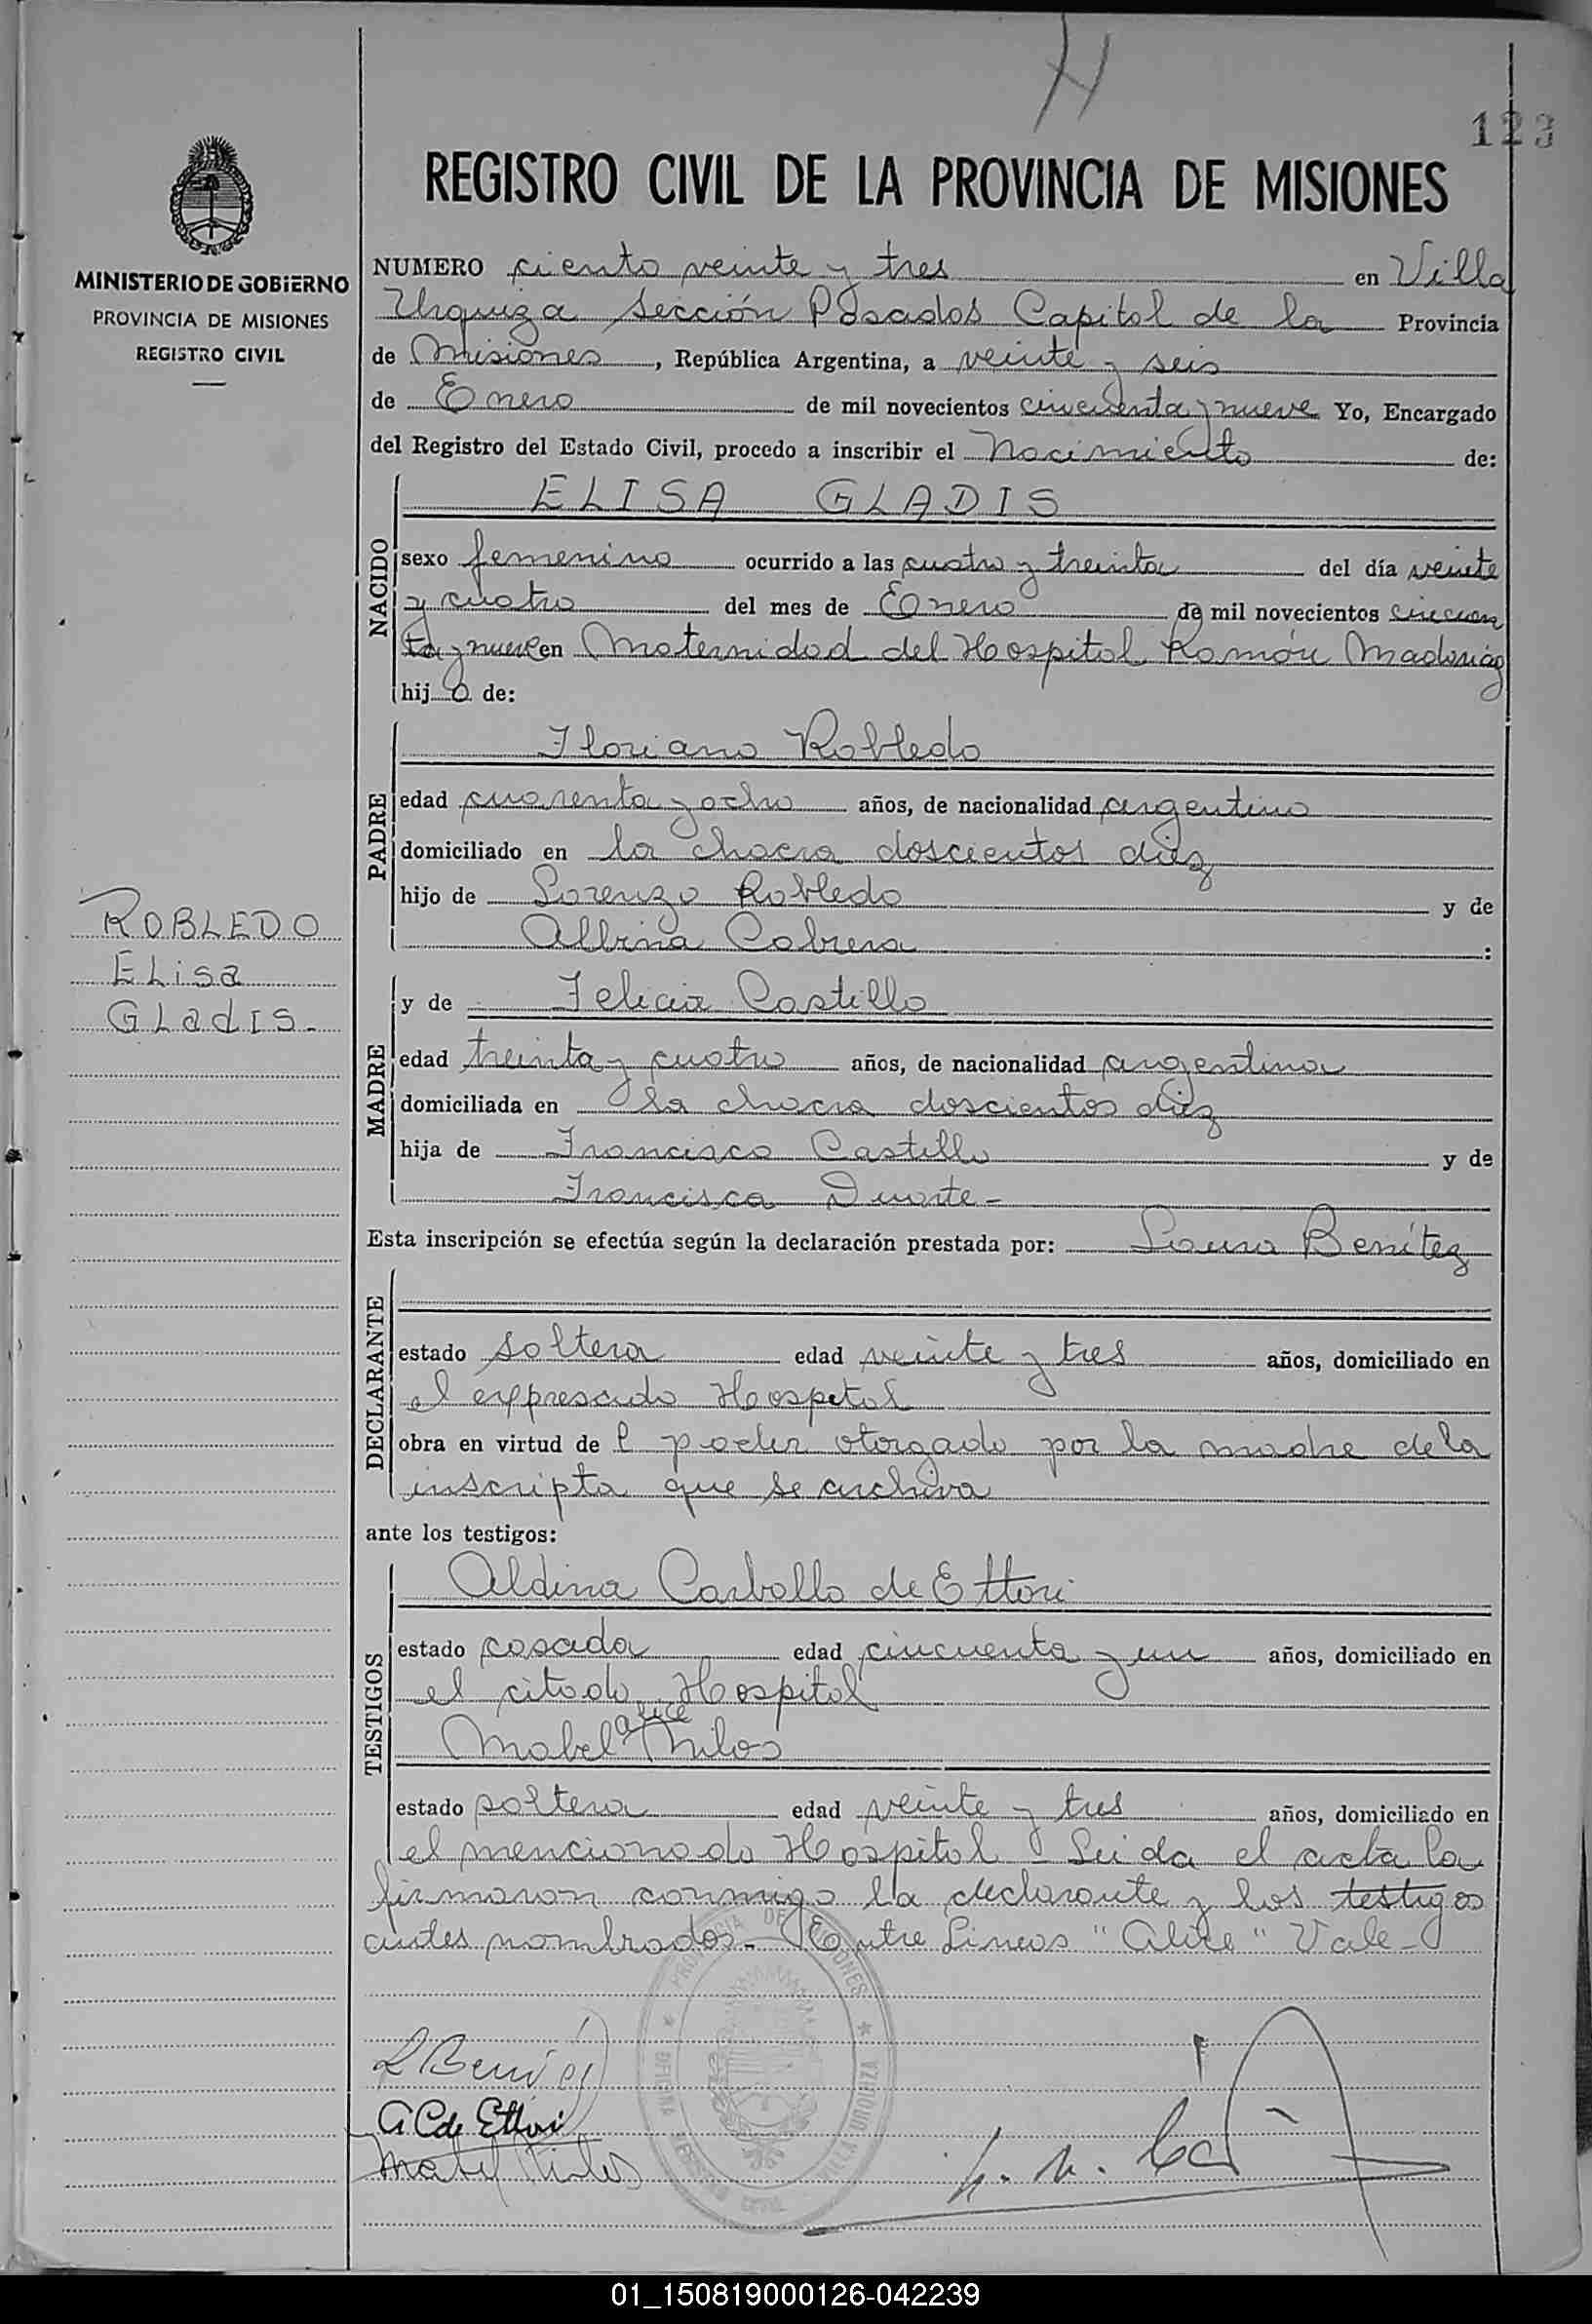 123
REGISTRO CIVIL DE LA PROVINCIA DE MISIONES
MINISTERIO DE GOBIERNO
PROVINCIA DE MISIONES
REGISTRO CIVIL
NUMERO ciento veinte y tres en Villa
Urquiza sección Posadas Capital de la Provincia
de Misiones, República Argentina, a veinte y seis
de Enero de mil novecientos cincuenta y nueve Yo, Encargado
del Registro del Estado Civil, procedo a inscribir el Nacimiento de:
NACIDO
ELISA GLADIS
sexo femenino ocurrido a las cuatro y treinta del día veinte
y cuatro del mes de Enero de mil novecientos cincuen
ta y nueve en Maternidad del Hospital Ramón Madariaga
hija de:
PADRE
Floriano Robledo
edad cuarenta y ocho años, de nacionalidad argentino
domiciliado en la chacra doscientos diez
hijo de Lorenzo Robledo y de
Albina Cabrera :
ROBLEDO
ELisa
GLadIS.-
MADRE
y de Felicia Castillo
edad treinta y cuatro años, de nacionalidad argentina
domiciliada en la chacra doscientos diez
hija de Francisco Castillo y de
Francisca Duarte -
Esta inscripción se efectúa según la declaración prestada por: Laura Benítez
DECLARANTE
estado soltera edad veinte y tres años, domiciliado en
el expresado Hospital
obra en virtud de l poder otorgado por la madre de la
inscripta que se archiva
ante los testigos:
TESTIGOS
Aldina Carballo de Ettori
estado casada edad cincuenta y un años, domiciliado en
el citado Hospital
Alice
Mabel
estado soltera edad veinte y tres años, domiciliado en
el mencionado Hospital - Leida el acta la
firmaron conmigo la declarante y los testigos
antes nombrados.- Entre Lineas "Alice" Vale -
PROVINCIA DE MISIONES
VILLA URQUIZA
L Benítez
A C de Ettori
Mabel
01_150819000126-042239